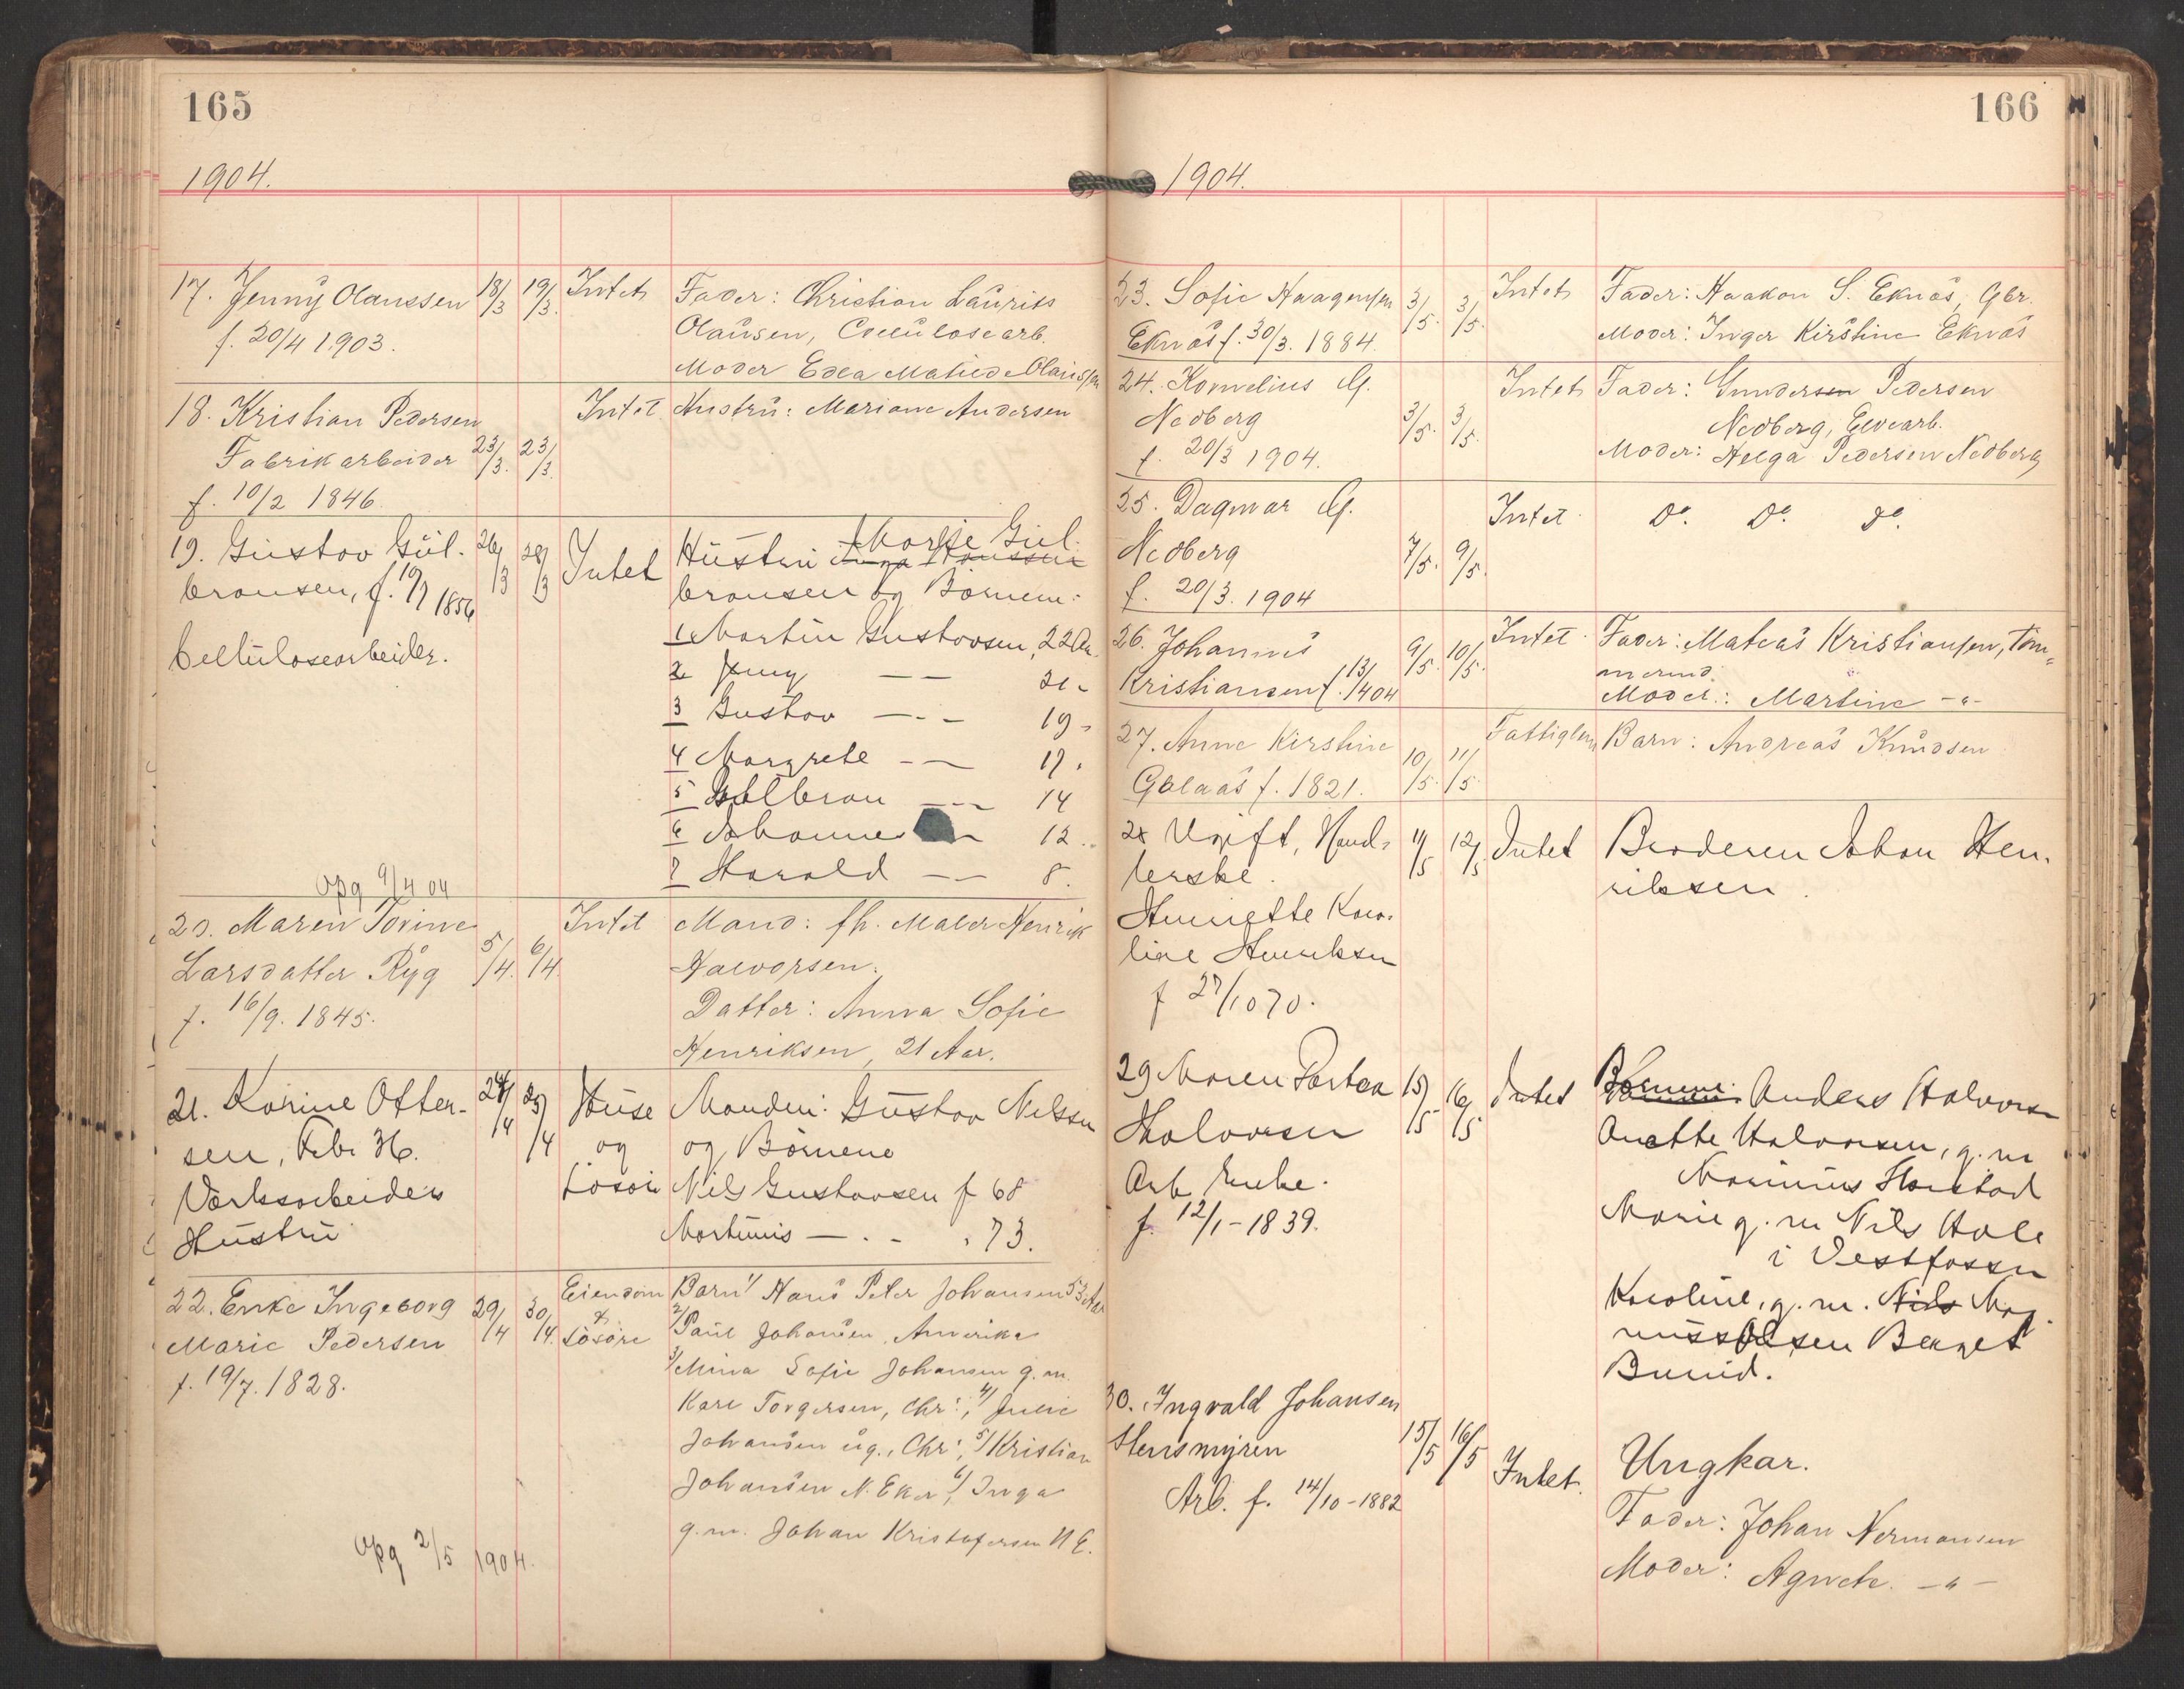 165
1904.
17. Jenny Olaussen 18/3 19/3. Intet Fader: Christian Laurits
f. 20/4 1903. Olausen, Cellulosearb.
Moder Edla Matilde Olaussen
18. Kristian Pedersen Intet Hustru: Mariane Andersen
Fabrikarbeider 23/3. 23/3.
f. 10/2 1846.
19. Gustav Gul- 26/3 28/3 Intet Hustru Marie Gul-
bransen, f. 19/7 1856 bransen og Børnene:
Cellulosearbeider. 1 Martin Gustavsen, 22 Aar
2 Jenny — — 21 "
3 Gustav — " — 19 "
4 Margrete — — 17 "
5 Gulbran — — 14
6 Johannes — 12 "
7 Harald — — 8.
Opg 9/4 04
20. Maren Torine Intet Mand: fh. Maler Henrik
Larsdatter Ryg 5/4. 6/4 Halvorsen.
f. 16/9. 1845. Datter: Anna Sofie
Henriksen, 21 Aar.
21. Karine Otter- 24/4 25/4 Huse Manden: Gustav Nilssen
sen, Febr 36. og og Børnene
Værksarbeiders Løsøre Nils Gustavsen f 68
Hustru Martinius — " — " 73.
22. Enke Ingeborg 29/4 30/4. Eiendom Barn: 1/ Hans Peter Johansen 53 Aar
Marie Pedersen & Løsøre 2/ Paul Johansen, Amerika
f. 19/7. 1828. 3/ Mina Sofie Johansen g. m.
Karl Torgersen, Chr:, 4/ Julie
Johansen ug., Chr:, 5/ Kristian
Johansen N. Eker, 6/ Inga
g. m. Johan Kristofersen N E.
Opg 2/5 1904.
166
1904.
23. Sofie Haagensen 3/5. 3/5. Intet Fader: Haakon S. Eknæs, Gbr.
Eknæs f. 30/3. 1884. Moder: Inger Kirstine Eknæs
24. Kornelius G. Intet Fader: Gundersen Pedersen
Nedberg 3/5. 3/5. Nedberg, Elvearb.
f. 20/3 1904. Moder: Helga Pedersen Nedberg
25. Dagmar G. Intet Do. Do. Do.
Nedberg 7/5. 9/5.
f. 20/3. 1904
26. Johannes 9/5. 10/5. Intet Fader: Mateas Kristiansen, Tøm-
Kristiansen f. 13/1 1904 mermd.
Moder: Martine — " —
27. Anne Kirstine 10/5. 11/5. Fattiglem Barn: Andreas Knudsen
f. 1821.
28 Ugift, Hand- 11/5 12/5 Intet Broderen Johan Hen-
lerske. riksen.
Henriette Karo-
line Henriksen
f 27/10 70.
29 Maren 15/5 16/5 Intet Børnene: Anders Halvorsen
Halvorsen Anette Halvorsen, g. m
Arb. Enke.
f. 12/1 - 1839. Marie g. m Nils Hole
i Vestfossen
Karoline, g. m. Nils Mag-
nus Olsen Berget
Bmd.
30. Ingvald Johansen
Hensmyren 15/5 16/5 Intet. Ungkar.
Arb. f. 14/10 - 1882 Fader: Johan Hermansen
Moder: Agnete. — " —